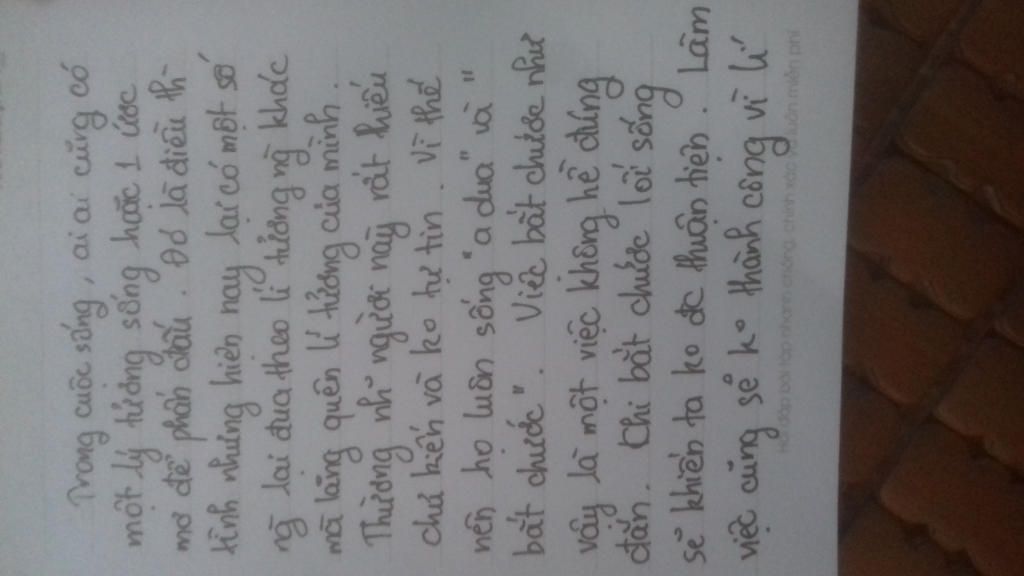 Trong cuộc sống, ai ai cũng có
một lý tưởng sống hoặc 1 ước
mơ để phấn đấu. Đó là điều thì
tình nhưng hiện nay lại có một số
ng lại đua theo lí tưởng ng khác
mà lãng quên lí tưởng của mình.
Thường nh~ người này rất thiếu
chứ kiến và ko tự tin. Vì thế
nên họ luôn sống "a dua" và "
bắt chước". Việc bắt chước như
vậy là một việc không hề đúng
đắn. Chỉ bắt chước lối sống
sẽ khiến ta ko đc thuận tiện. Làm
việc cũng sẽ ko thành công vì lí
Hỏi đáp bài tập nhanh chóng, chính xác và luôn miễn phí